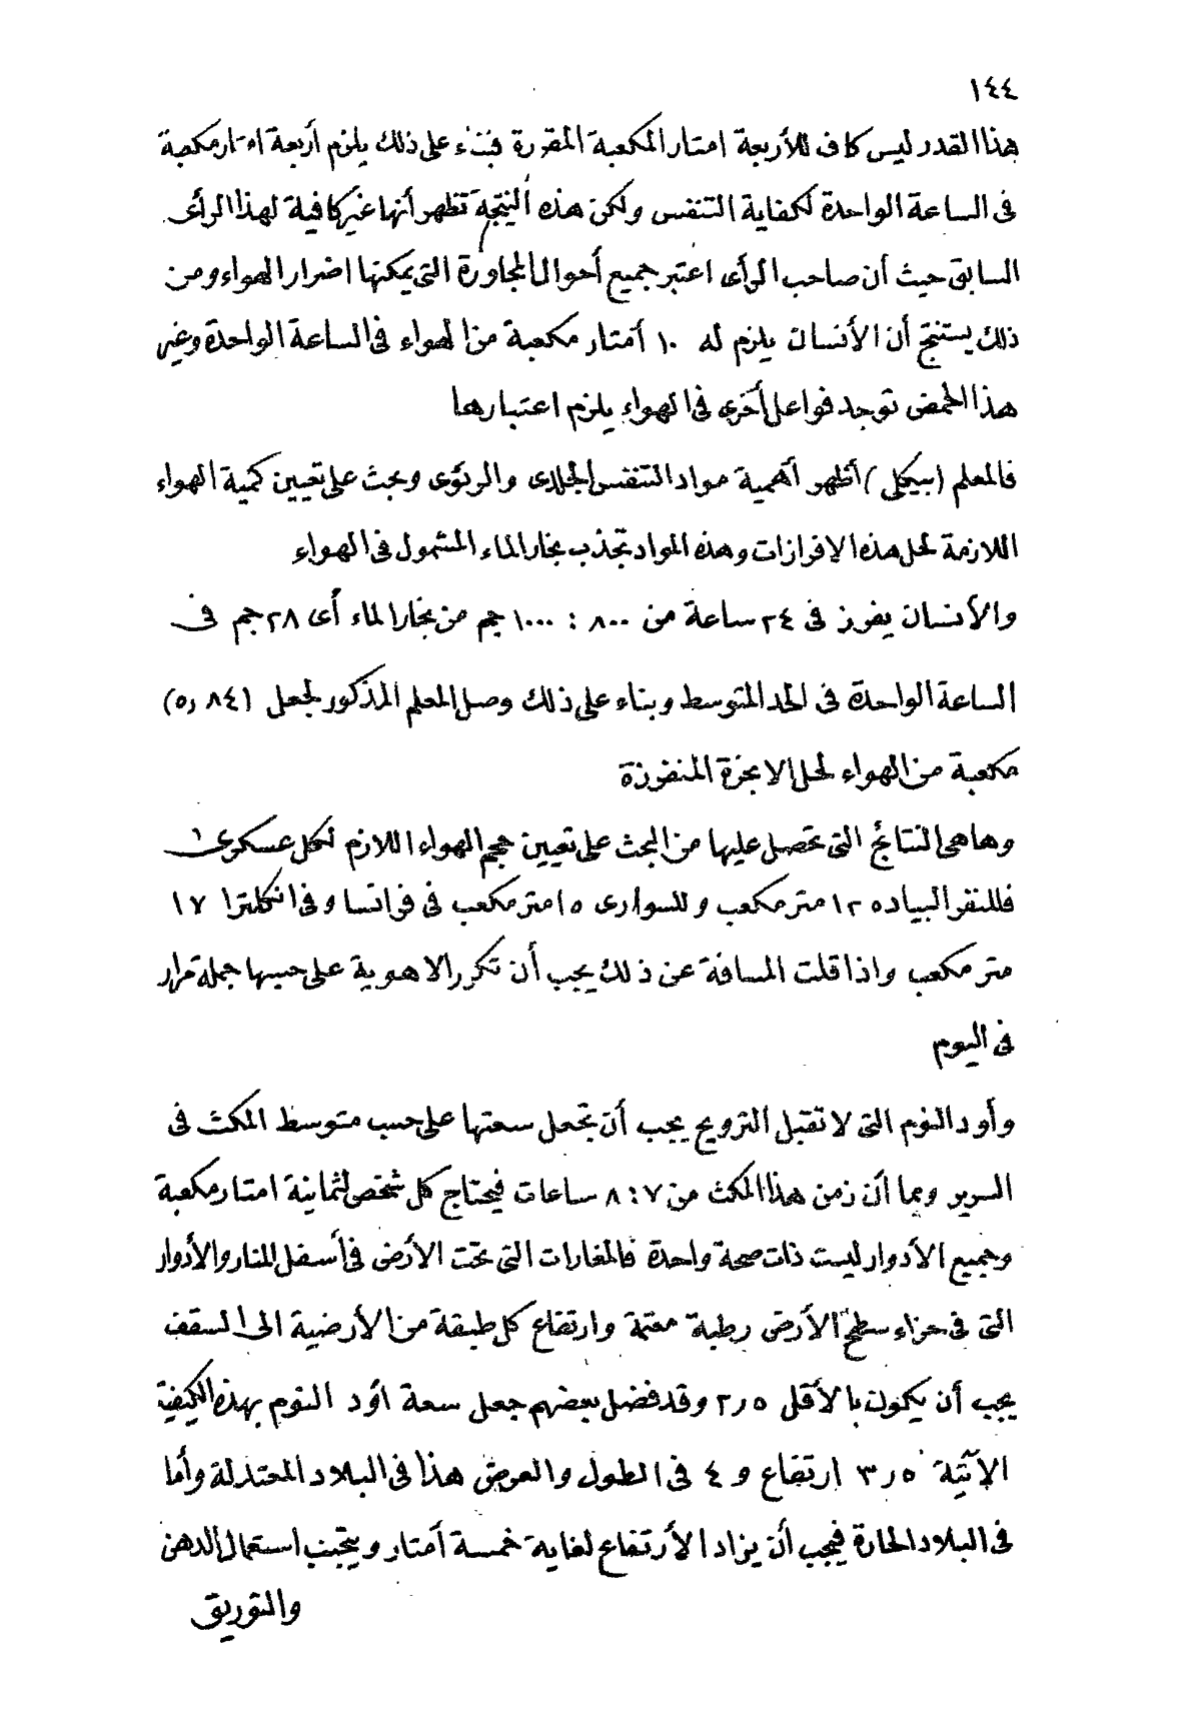 ١٤٤
هذا القدر ليس كاف للأربعة امتار المكعبة المقررة فبناء على ذلك يلزم أربعة امتار مكعبة
فى الساعة الواحدة لكفاية التنفس ولكن هذه النتيجة تظهر أنها غير كافية لهذا الرأى
السابق حيث أن صاحب الرأى اعتبر جميع أحوال المجاورة التى يمكنها اضرار الهواء ومن
ذلك يستنتج أن الأنسان يلزم له ١٠ أمتار مكعبة من الهواء فى الساعة الواحدة وغير
هذا الحمض توجد فواعل أخرى فى الهواء يلزم اعتبارها
فالمعلم (بيكلى) أظهر أهمية مواد التنفس الجلدى والرئوى وبحث على تعيين كمية الهواء
اللازمة لحل هذه الافرازات وهذه المواد تجذب بخار الماء المشمول فى الهواء
والأنسان يفرز فى ٢٤ ساعة من ٨٠٠ : ١٠٠٠ جم من بخار الماء أى ٢٨ جم فى
الساعة الواحدة فى الحد المتوسط وبناء على ذلك وصل المعلم المذكور لجعل (٥٫٨٤)
مكعبة من الهواء لحل الابخرة المنفرزة
وها هى النتائج التى تحصل عليها من البحث على تعيين حجم الهواء اللازم لكل عسكرى
فللنفر البياده ١٢ متر مكعب وللسوارى ١٥ متر مكعب فى فرانسا وفى انكلترا ١٧
متر مكعب واذا قلت المسافة عن ذلك يجب أن تكرر الاهوية على حسبها جملة مرار
فى اليوم
وأود النوم التى لا تقبل الترويح يجب أن تجعل سعتها على حسب متوسط المكث فى
السرير وبما أن زمن هذا المكث من ٧ : ٨ ساعات فيحتاج كل شخص لثمانية امتار مكعبة
وجميع الأدوار ليست ذات صحة واحدة فالمغارات التى تحت الأرض فى أسفل المنار والأدوار
التى فى حزاء سطح الأرض رطبة معتمة وارتفاع كل طبقة من الأرضية الى السقف
يجب أن يكون بالأقل ٢٫٥ وقد فضل بعضهم جعل سعة اود النوم بهذه الكيفية
الآتية ٣٫٥ ارتفاع و ٤ فى الطول والعرض هذا فى البلاد المعتدلة وأما
فى البلاد الحارة فيجب أن يزاد الأرتفاع لغاية خمسة أمتار ويتجنب استعمال الدهن
والتوريق